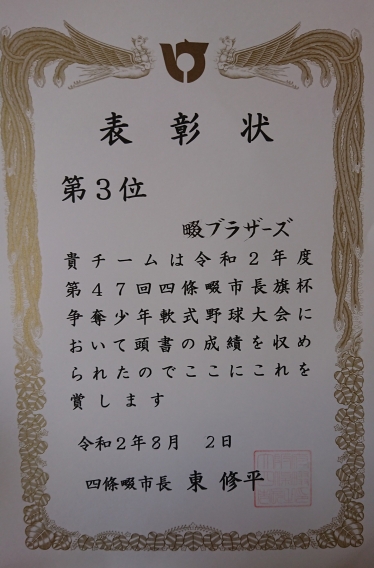 表彰状
第３位
畷ブラザーズ
貴チームは令和２年度
第４７回四條畷市長旗杯
争奪少年軟式野球大会に
おいて頭書の成績を収め
られたのでここにこれを
賞します
令和２年８月　２日
四條畷市長 東 修平